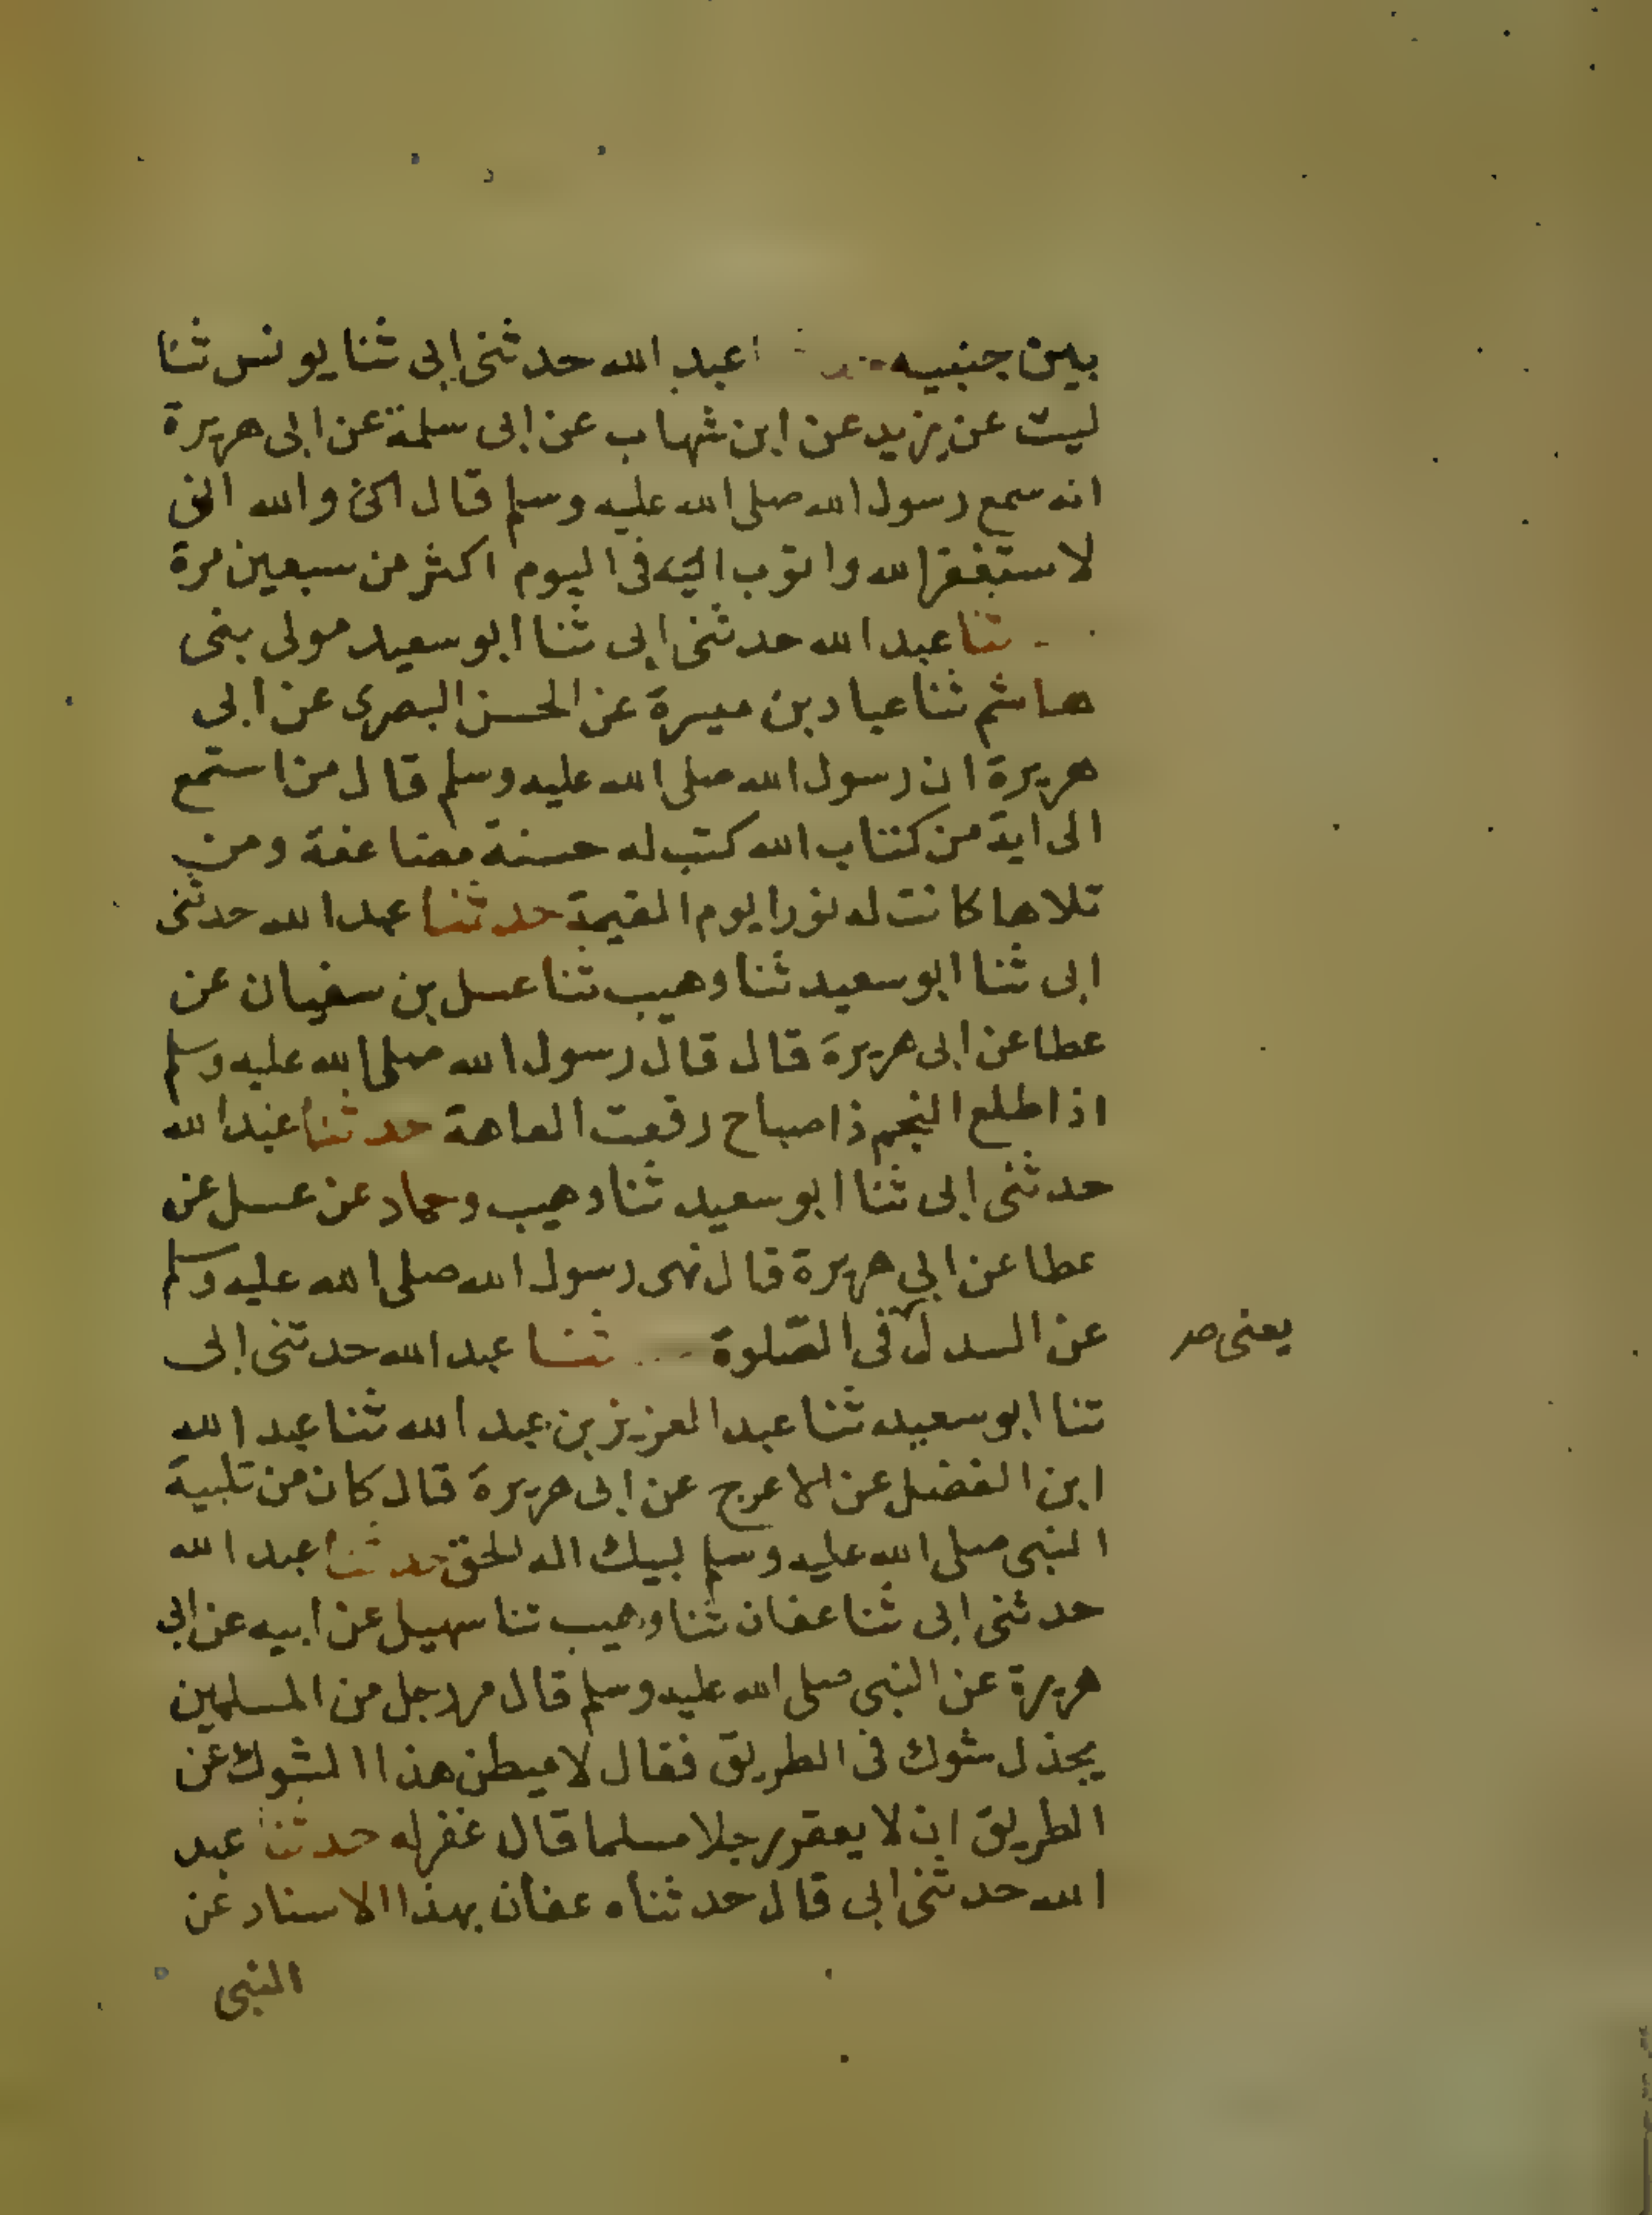 بين جنبيه عبد الله حدثنى ابى ثنا يونس ثنا
ليث عن يزيد عن ابن شهاب عن ابى سلمة عن ابى هريرة
انه سمع رسول الله صلى الله عليه وسلم قال والله انى
لاستغفر الله واتوب اليه فى اليوم اكثر من سبعين مرة
ثنا عبد الله حدثنى ابى ثنا ابو سعيد مولى بنى
هاشم ثنا عباد بن ميسرة عن الحسن البصرى عن ابى
هريرة ان رسول الله صلى الله عليه وسلم قال من استمع
الى اية من كتاب الله كتب له حسنة مضاعفة ومن
تلاها كانت له نورا يوم القيمة حدثنا عبد الله حدثنى
ابى ثنا ابو سعيد ثنا وهيب ثنا عسل بن سفيان عن
عطا عن ابى هريرة قال قال رسول الله صلى الله عليه وسلم
اذا طلع النجم ذا صباح رفعت العاهة حدثنا عبد الله
حدثنى ابى ثنا ابو سعيد ثنا وهيب وحماد عن عسل عن
عطا عن ابي هريرة قال نهى رسول الله صلى الله عليه وسلم
عن السدل فى الصّلوة ثنا عبد الله حدثنى ابى
يعنى صر
ثنا ابو سعيد ثنا عبد العزيز بن عبد الله ثنا عبد الله
ابن الفضل عن الاعرج عن ابى هريرة قال كان من تلبية
النبى صلى الله عليه وسلم لبيك اله الحق حدثنا عبد الله
حدثنى ابى ثنا عفان ثنا وهيب ثنا سهيل عن ابيه عن ابى
هريرة عن النبى صلى الله عليه وسلم قال مر رجل من المسلمين
بجذل شوك فى الطريق فقال لاميطن هذا الشوك عن
الطريق ان لا يعقر رجلا مسلما قال غفر له حدثنا عبد
الله حدثنى ابى قال حدثناه عفان بهذا الاسناد عن
النبى